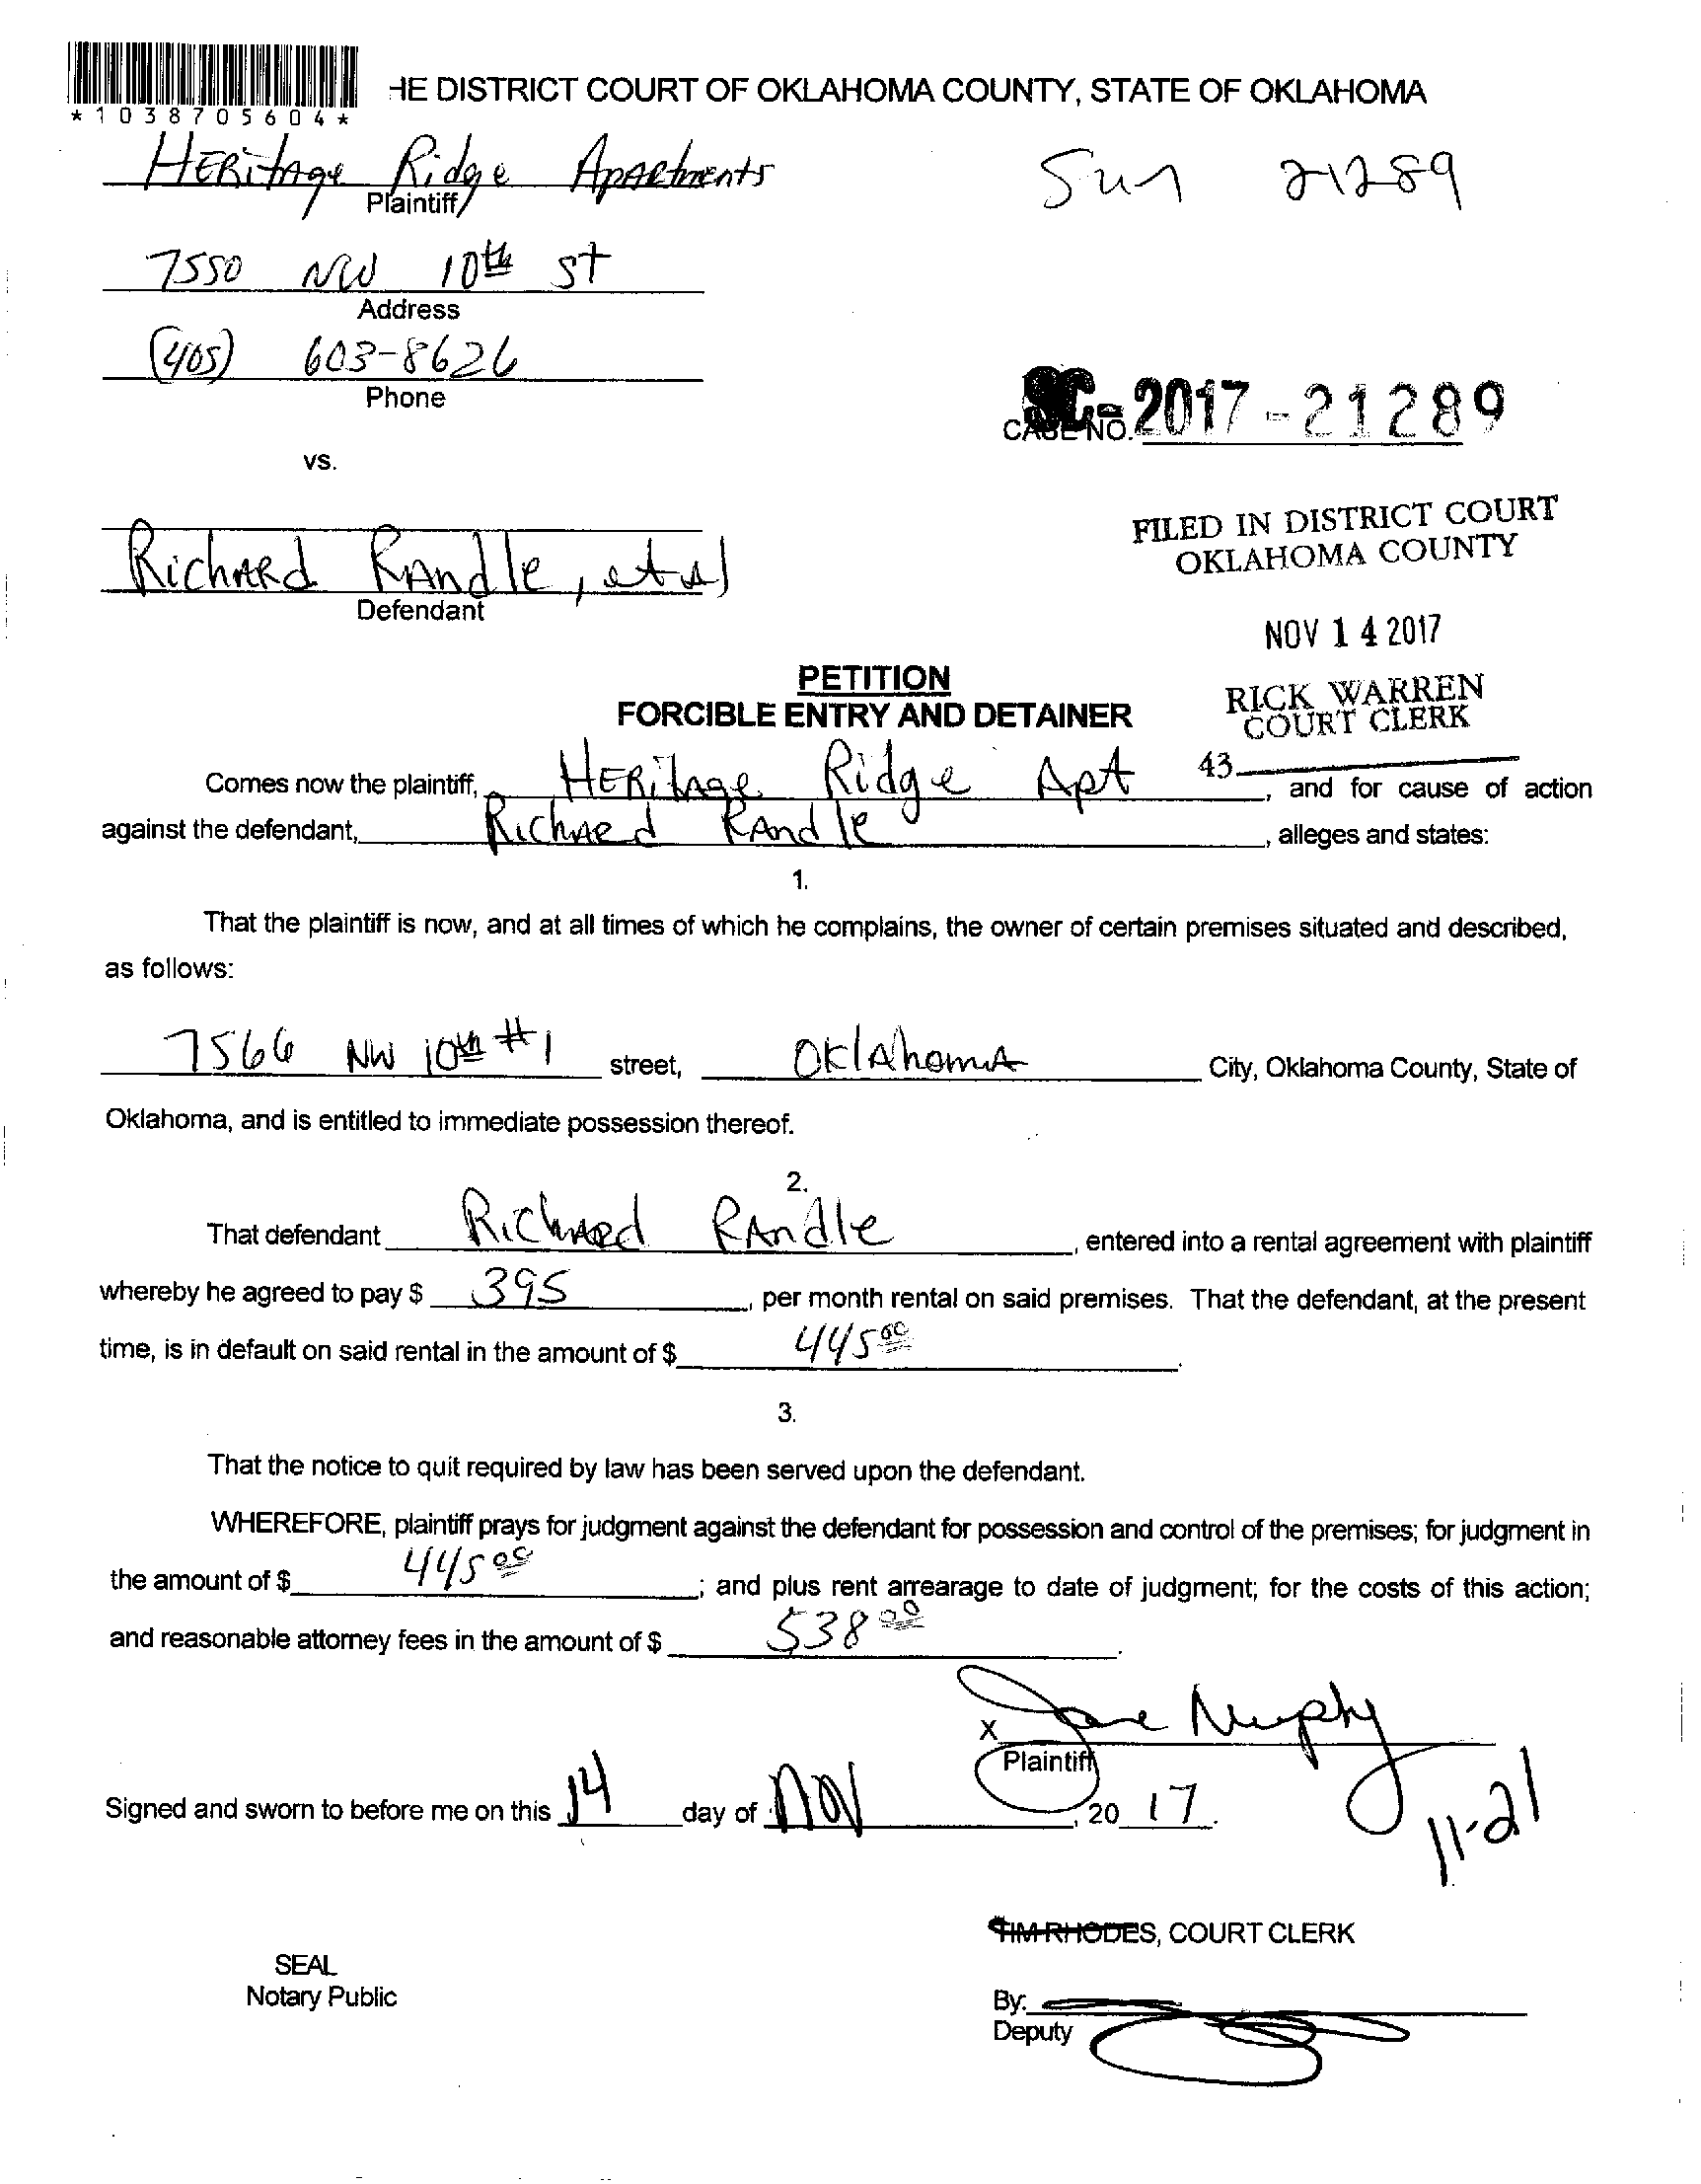 HE DISTRICT COURT OF OKLAHOMA COUNTY, STATE OF OKLAHOMA
*1038705604*
HERitage Ridge Apartments
Plaintiff
Sun 21289
7550 NW 10th St
Address
(405) 603-8626
Phone
SC-2017-21289
CASE NO.
vs.
FILED IN DISTRICT COURT
OKLAHOMA COUNTY
RichARd RAndle, et al
Defendant
NOV 14 2017
PETITION
FORCIBLE ENTRY AND DETAINER
RICK WARREN
COURT CLERK
43
Comes now the plaintiff, HERitage Ridge Apt, and for cause of action
against the defendant, RichARd RAndle, alleges and states:
1.
That the plaintiff is now, and at all times of which he complains, the owner of certain premises situated and described,
as follows:
7566 NW 10th #1 street, OklAhomA City, Oklahoma County, State of
Oklahoma, and is entitled to immediate possession thereof.
2.
That defendant RichARd RAndle, entered into a rental agreement with plaintiff
whereby he agreed to pay $ 395, per month rental on said premises. That the defendant, at the present
time, is in default on said rental in the amount of $ 445 00.
3.
That the notice to quit required by law has been served upon the defendant.
WHEREFORE, plaintiff prays for judgment against the defendant for possession and control of the premises; for judgment in
the amount of $ 445 00; and plus rent arrearage to date of judgment; for the costs of this action;
and reasonable attorney fees in the amount of $ 538 00.
X Jane Murphy
Plaintiff
Signed and sworn to before me on this 14 day of NOV, 20 17.
11-21
TIM RHODES, COURT CLERK
SEAL
Notary Public
By:
Deputy